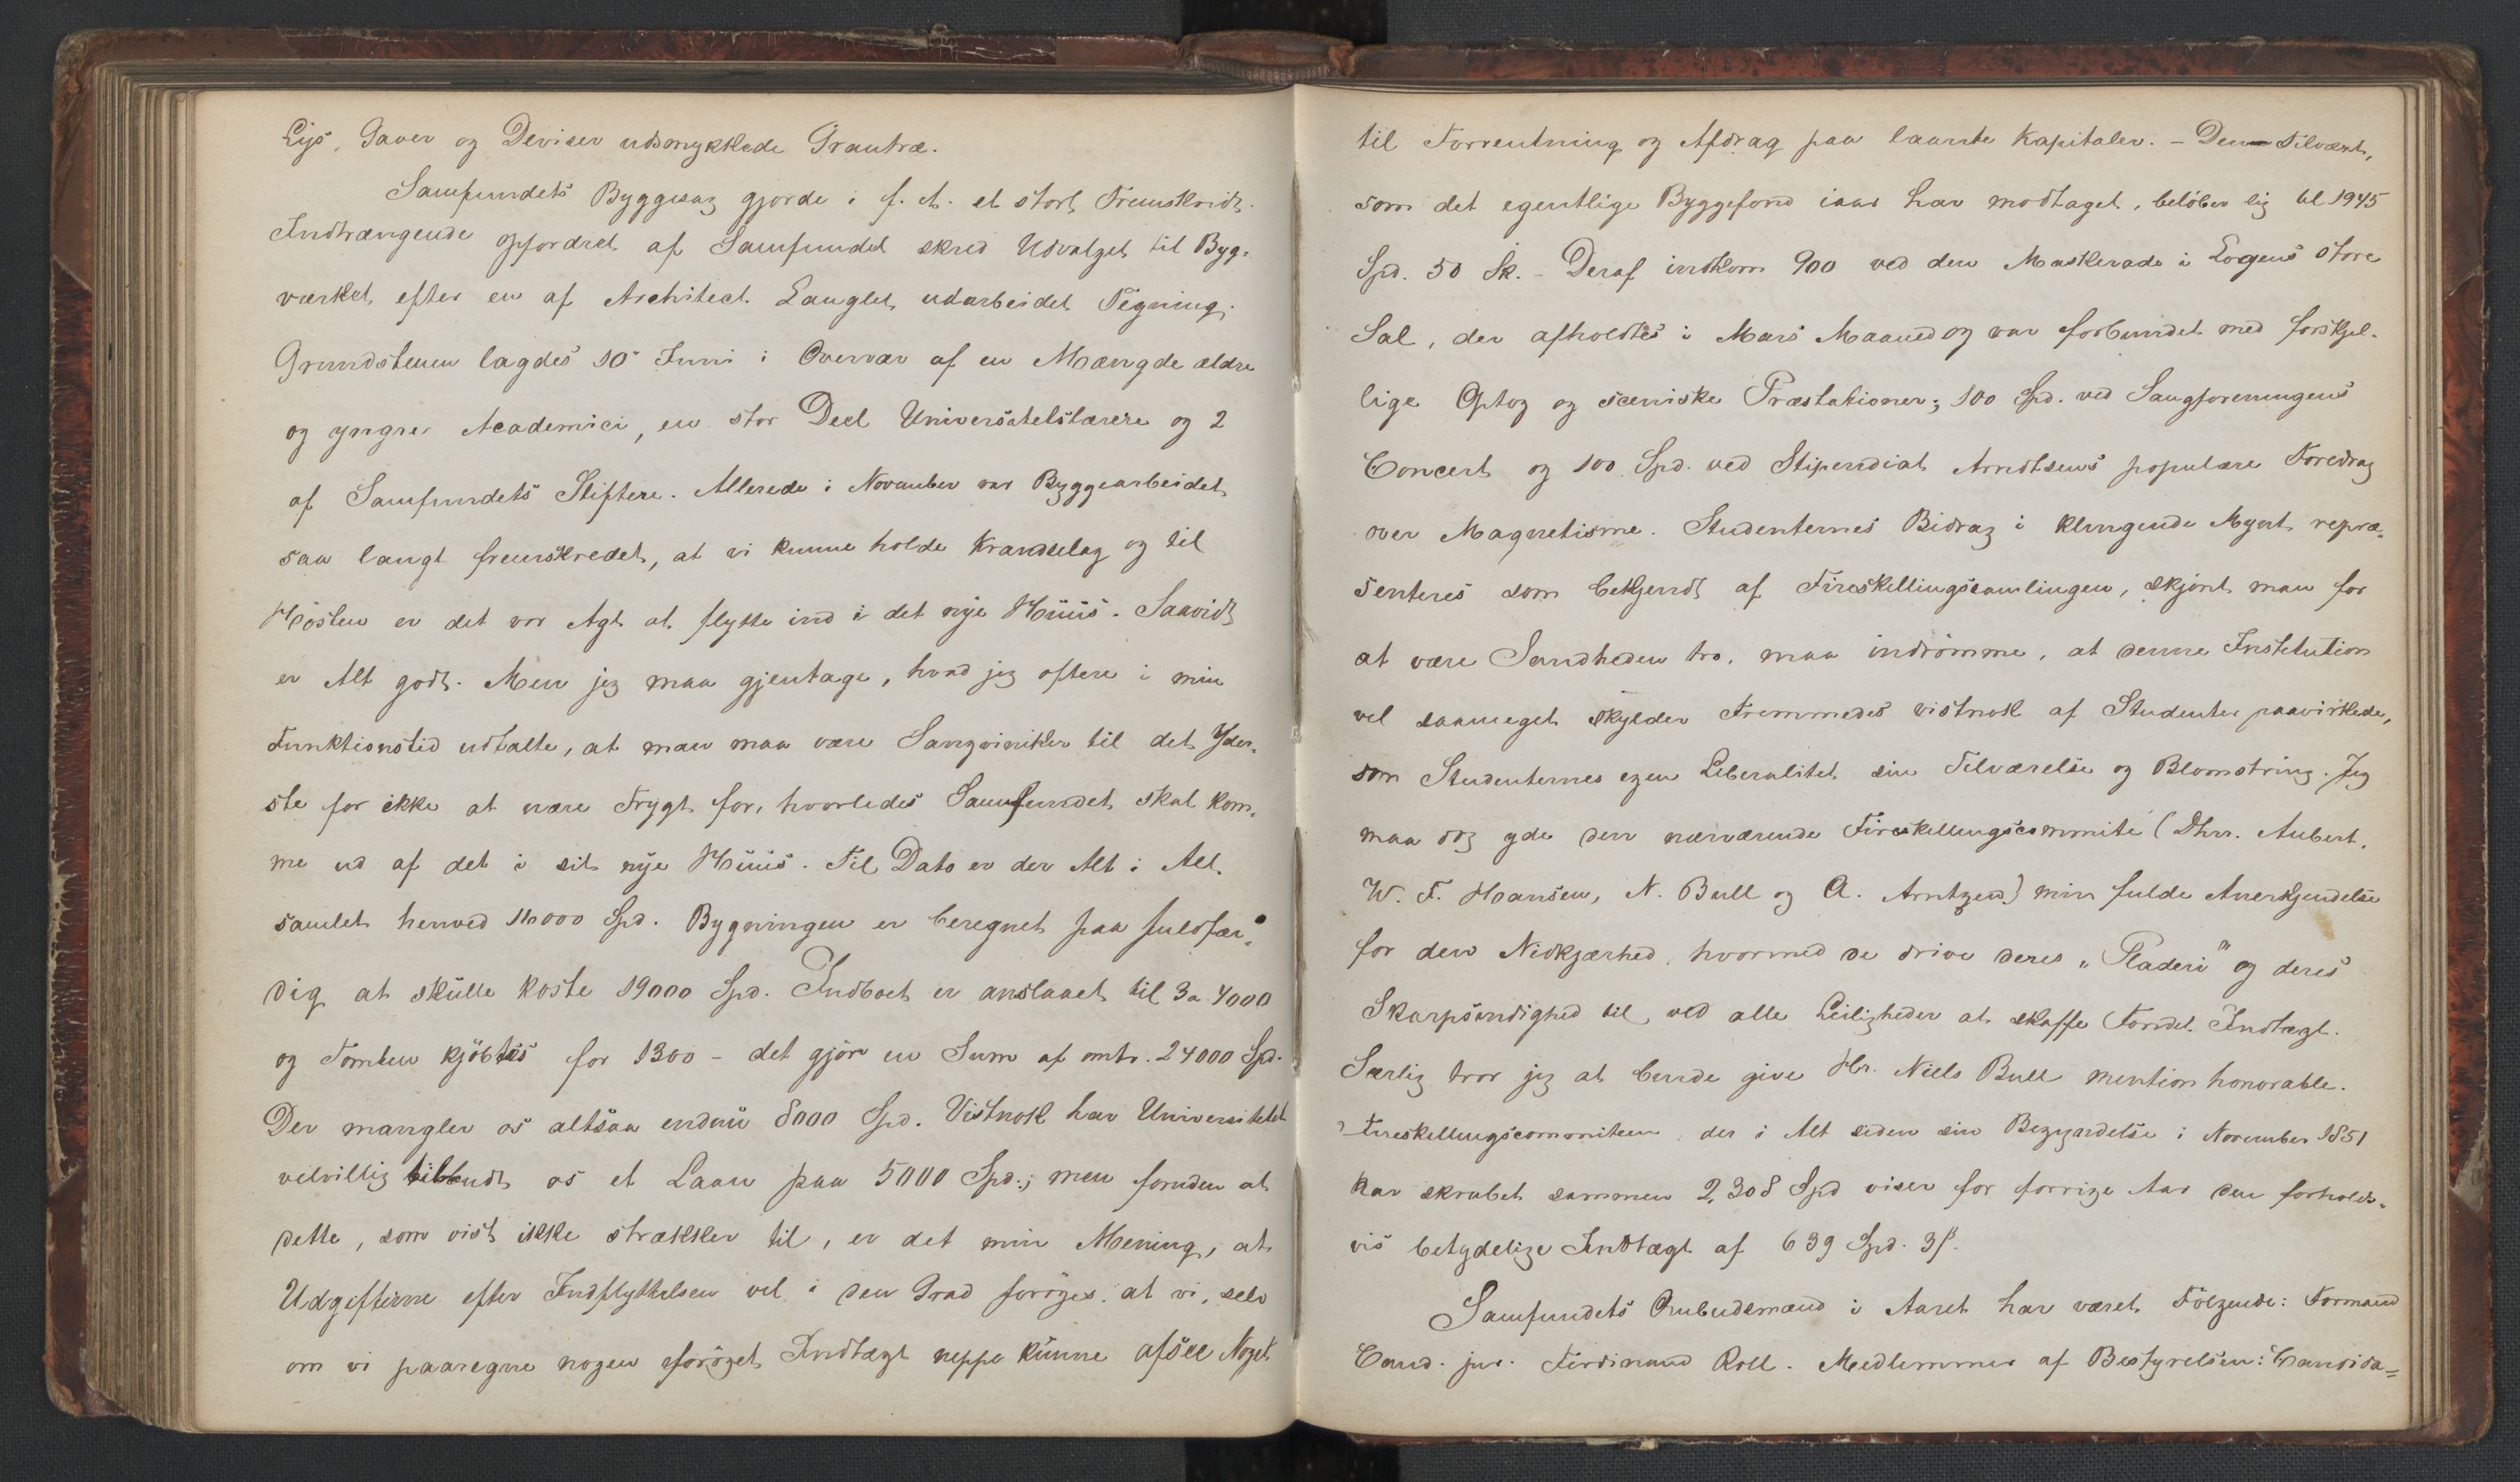 Lys, Gaver og Deviser udsmykkede Grantræ.
Samfundets Byggesag gjorde i f. A. et stort Fremskridt.
Indtrængende opfordret af Samfundet skred Udvalget til Byg-
værket efter en af Architect Langlet udarbeidet Tegning.
Grundstenen lagdes 10 Juni i Overvær af en Mængde ældre
og yngre Academici, en stor Deel Universitetslærere og 2
af Samfundets Stiftere. Allerede i November var Byggearbeidet
saa langt fremskredet, at vi kunne holde Krandselag og til
Høsten er det vor Agt at flytte ind i det nye Huus. Saavidt
er Alt godt. Men jeg maa gjentage, hvad jeg oftere i min
Funktionstid udtalte, at man maa være Sangviniker til det Yder-
ste for ikke at være Frygt for, hvorledes Samfundet skal kom-
me ud af det i sit nye Huus. Til Dato er der Alt i Alt
samlet henved 16000 Spd. Bygningen er beregnet paa fuldfær-
dig at skulle koste 19000 Spd. Indboet er anslaaet til 3 a 4000
og Tomten kjøbtes for 1300 - det gjør en Sum af omtr. 24000 Spd.
Der mangler os altsaa endnu 8000 Spd. Vistnok har Universitetet
velvillig tilbudt os et Laan paa 5000 Spd.; men foruden at
dette, som vist ikke strækker til, er det min Mening, at
Udgifterne efter Indflyttelsen vil i den Grad forøges, at vi, selv
om vi paaregne nogen forøget Indtægt neppe kunne afsee Noget
til Forrentning og Afdrag paa laante Kapitaler. - Den Tilvæxt,
som det egentlige Byggefond iaar har modtaget, beløber sig til 1945
Spd. 50 Sk. - Deraf indkom 900 ved den Maskerade i Logens store
Sal, der afholdtes i Mars Maaned og var forbundet med forskjel-
lige Optog og sceniske Præstationer; 100 Spd. ved Sangforeningens
Concert og 100 Spd. ved Stipendiat Arndtsens populære Foredrag
over Magnetisme. Studenternes Bidrag i klingende Mynt repræ-
senteres som bekjendt af Fireskillingssamlingen, skjønt man for
at være Sandheden tro, maa indrømme, at denne Institution
vel saameget skylder Fremmedes vistnok af Studenter paavirkede,
som Studenternes egen Liberalitet sin Tilværelse og Blomstring. Jeg
maa dog yde den nærværende Fireskillingscommité (Dhrr. Aubert,
W. F. Hansen, N. Bull og A. Arntzen) min fulde Anerkjendelse
for den Nidkjærhed, hvormed de drive deres "Pladeri" og deres
Skarpsindighed til, ved alle Leiligheder at skaffe Fondet Indtægt.
Særlig tror jeg at burde give Hr. Niels Bull mention honorable.
Fireskillingscommiteen, der i Alt siden sin Begyndelse i November 1851
har skrabet sammen 2,308 Spd viser for forrige Aar den forholds-
vis betydelige Indtægt af 639 Spd. 3 ß.
Samfundets Ombudsmænd i Aaret har været Følgende: Formand
Cand. jur. Ferdinand Roll. Medlemmer af Bestyrelsen: Candida-